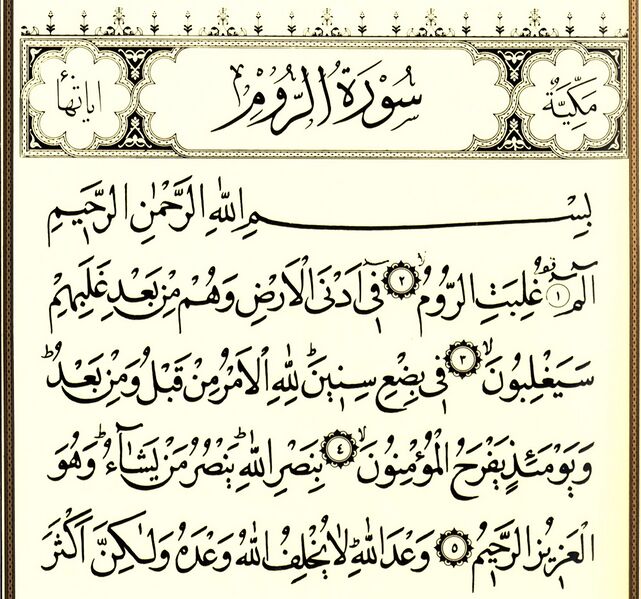 مَكِّيَّةٌ
سُورَةُ الرُّومِ
اٰيَاتُهَا ٦٠
بِسْمِ اللّٰهِ الرَّحْمٰنِ الرَّحِيمِ
الٓمٓ ۚ ١ غُلِبَتِ الرُّومُ ۙ ٢ فِٓى اَدْنَى الْاَرْضِ وَهُمْ مِنْ بَعْدِ غَلَبِهِمْ
سَيَغْلِبُونَ ۙ ٣ فِى بِضْعِ سِنِينَ ؕ لِلّٰهِ الْاَمْرُ مِنْ قَبْلُ وَمِنْ بَعْدُ ؕ
وَيَوْمَئِذٍ يَفْرَحُ الْمُؤْمِنُونَ ۙ ٤ بِنَصْرِ اللّٰهِ ؕ يَنْصُرُ مَنْ يَشَٓاءُ ؕ وَهُوَ
الْعَزِيزُ الرَّحِيمُ ۙ ٥ وَعْدَ اللّٰهِ ؕ لَا يُخْلِفُ اللّٰهُ وَعْدَهُ وَلٰكِنَّ اَكْثَرَ